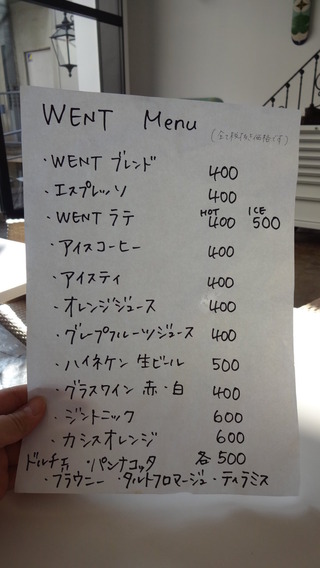 WENT Menu
(全て税込価格です)
・WENT ブレンド 400
・エスプレッソ 400
HOT ICE
・WENT ラテ 400 500
・アイスコーヒー 400
・アイスティ 400
・オレンジジュース 400
・グレープフルーツジュース 400
・ハイネケン 生ビール 500
・グラスワイン 赤・白 400
・ジントニック 600
・カシスオレンジ 600
ドルチェ ・パンナコッタ 各500
・ブラウニー ・タルトフロマージュ ・ティラミス